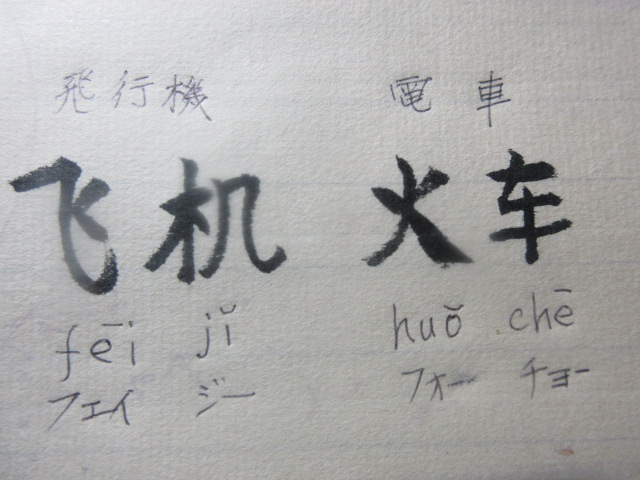 飛行機 電車
飞机 火车
fēi jǐ huǒ chē
フェイ ジー フォー チョー